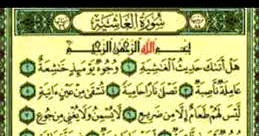 سورة الغاشية
بسم الله الرحمن الرحيم
هل أتىك حديث الغشية ١ وجوه يومئذ خشعة ٢
عاملة ناصبة ٣ تصلى نارا حامية ٤ تسقى من عين ءانية ٥
ليس لهم طعام إلا من ضريع ٦ لا يسمن ولا يغني من جوع ٧